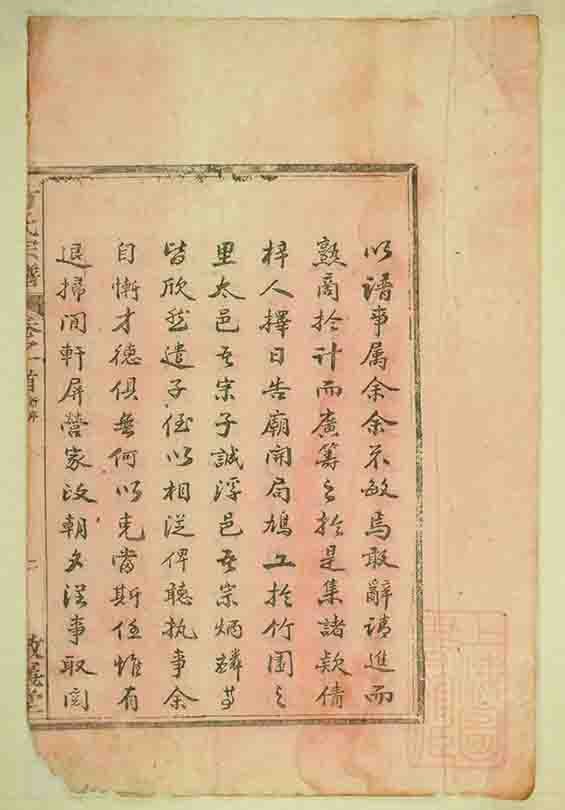 以譜事属余余不敏焉敢辭請進而
熟商於計而廣籌之於是集諸欵倩
梓人擇日告廟開局鳩工於竹園之
里太邑吾宗子誠浮邑吾宗炳麟等
皆欣然遣子侄以相從俾聽执事余
自慚才德俱無何以克當斯任惟有
退掃閒軒屏營家政朝夕從事取图
氏宗譜 卷之首